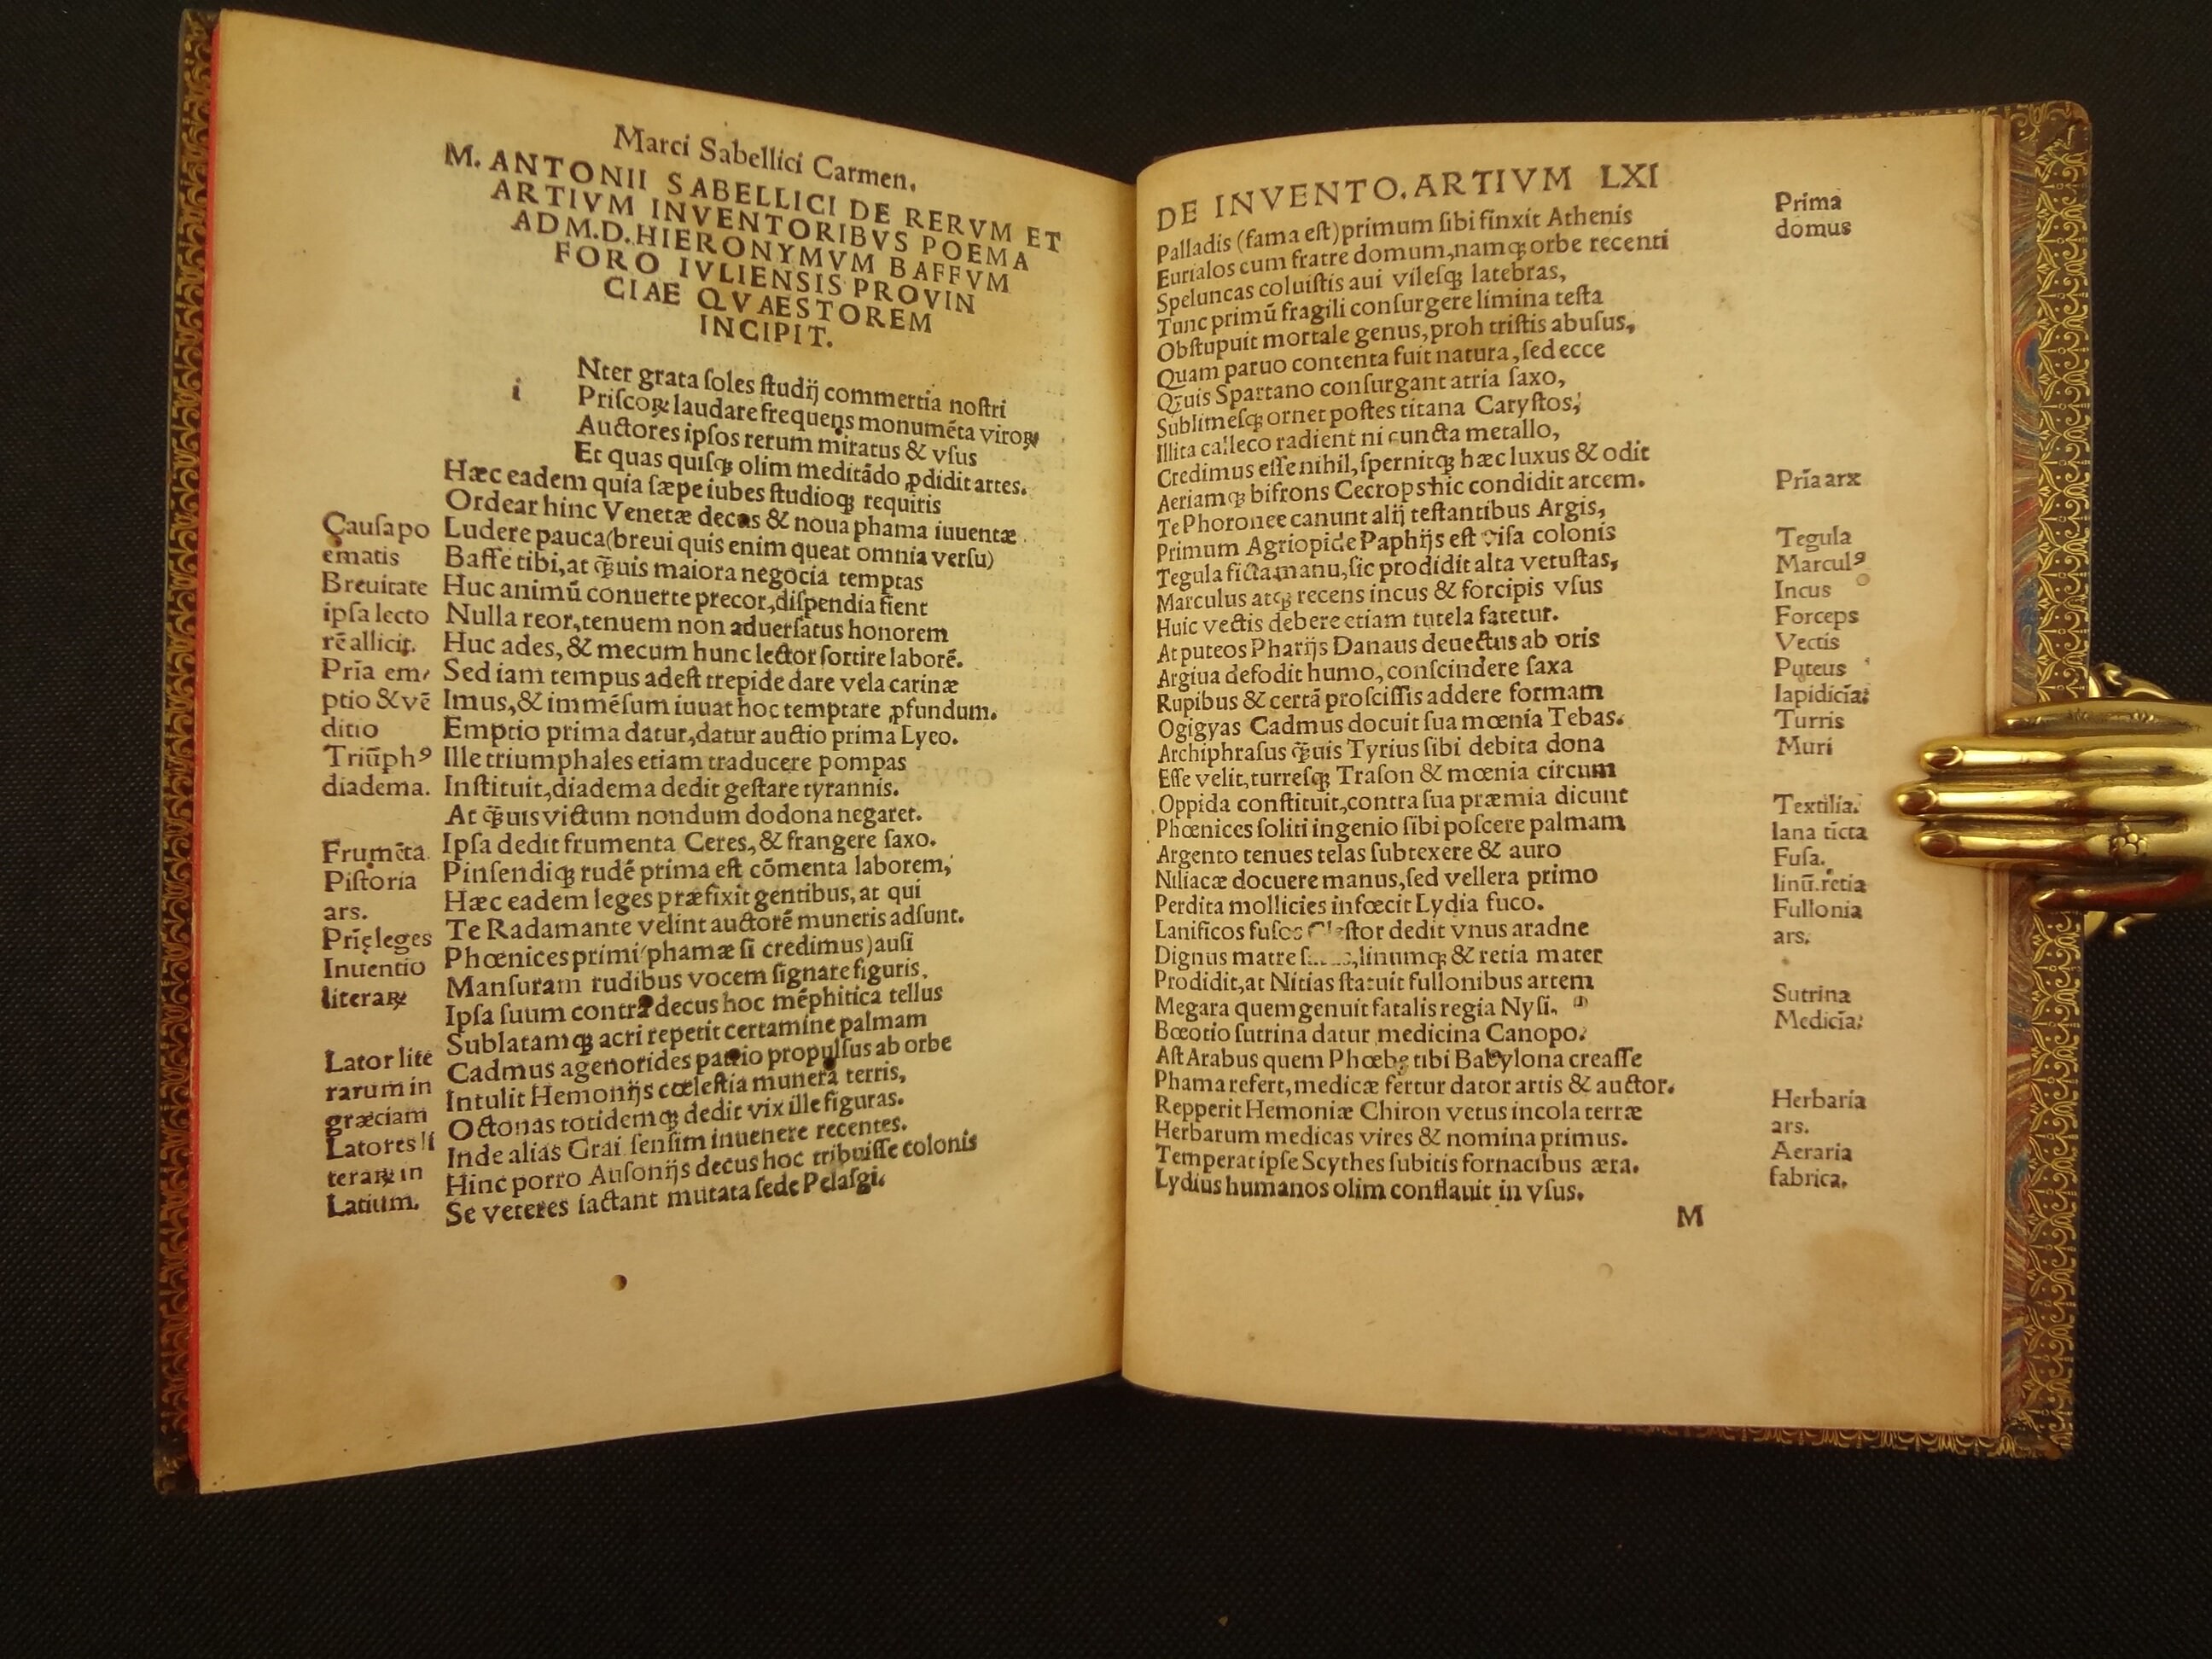 Marci Sabellici Carmen.
M. ANTONII SABELLICI DE RERVM ET
ARTIVM INVENTORIBVS POEMA
AD M.D.HIERONYMVM BAFFVM
FORO IVLIENSIS PROVIN
CIAE QVAESTOREM
INCIPIT.
i
Nter grata ſoles ſtudij commertia noſtri
Priſcoꝝ laudare frequens monumēta viroꝝ
Auctores ipſos rerum miratus & vſus
Et quas quiſqꝫ olim meditādo ꝓdidit artes.
Hæc eadem quia ſæpe iubes ſtudioqꝫ requiris
Ordear hinc Venetæ decus & noua phama iuuentæ
Ludere pauca(breui quis enim queat omnia verſu)
Baffe tibi,at q̄uis maiora negocia temptas
Huc animū conuerte precor,diſpendia fient
Nulla reor,tenuem non aduerſatus honorem
Huc ades, & mecum hunc lector ſortire laborē.
Sed iam tempus adeſt trepide dare vela carinæ
Imus,& immēſum iuuat hoc temptare ꝓfundum.
Emptio prima datur,datur auctio prima Lyeo.
Ille triumphales etiam traducere pompas
Inſtituit,diadema dedit geſtare tyrannis.
At q̄uis victum nondum dodona negaret.
Ipſa dedit frumenta Ceres,& frangere ſaxo.
Pinſendiqꝫ rudē prima eſt cōmenta laborem,
Hæc eadem leges præfixit gentibus, at qui
Te Radamante velint auctorē muneris adſunt.
Phœnices primi(phamæ ſi credimus)auſi
Manſuram rudibus vocem ſignare figuris.
Ipſa ſuum contra decus hoc mēphitica tellus
Sublatamqꝫ acri repetit certamine palmam
Cadmus agenorides patrio propulſus ab orbe
Intulit Hemonijs cœleſtia munera terris,
Octonas totidemqꝫ dedit vix ille figuras.
Inde alias Grai ſenſim inuenere recentes.
Hinc porro Auſonijs decus hoc tribuiſſe colonis
Se veteres iactant mutata ſede Pelaſgi.
Cauſa po
ematis
Breuitate
ipſa lecto
rē allicit.
Prīa em
ptio & vē
ditio
Triūphꝰ
diadema.
Frumēta
Piſtoria
ars.
Prīę leges
Inuentio
literaꝝ
Lator lite
rarum in
græciam
Latores li
teraꝝ in
Latium.
DE INVENTO.ARTIVM LXI
Palladis (fama eſt)primum ſibi finxit Athenis
Eurialos cum fratre domum,namqꝫ orbe recenti
Speluncas coluiſtis aui vileſqꝫ latebras,
Tunc primū fragili conſurgere limina teſta
Obſtupuit mortale genus,proh triſtis abuſus,
Quam paruo contenta fuit natura,ſed ecce
Qꝫuis Spartano conſurgant atria ſaxo,
Sublimeſqꝫ ornet poſtes titana Caryſtos,
Illita calleco radient ni cuncta metallo,
Credimus eſſe nihil,ſpernitqꝫ hæc luxus & odit
Aeriamqꝫ bifrons Cecrops hic condidit arcem.
Te Phoronee canunt alij teſtantibus Argis,
Primum Agriopide Paphijs eſt viſa colonis
Tegula ficta manu,ſic prodidit alta vetuſtas,
Marculus atqꝫ recens incus & forcipis vſus
Huic vectis debere etiam tutela fatetur.
At puteos Pharijs Danaus deuectus ab oris
Argiua defodit humo, conſcindere ſaxa
Rupibus & certā proſciſſis addere formam
Ogigyas Cadmus docuit ſua mœnia Tebas.
Archiphraſus q̄uis Tyrius ſibi debita dona
Eſſe velit,turreſqꝫ Traſon & mœnia circum
Oppida conſtituit,contra ſua præmia dicunt
Phœnices ſoliti ingenio ſibi poſcere palmam
Argento tenues telas ſubtexere & auro
Niliacæ docuere manus,ſed vellera primo
Perdita mollicies infœcit Lydia fuco.
Lanificos dedit vnus aradne
Dignus matre linumqꝫ & retia mater
Prodidit,at Nitias ſtatuit fullonibus artem
Megara quem genuit fatalis regia Nyſi.
Bœotio ſutrina datur medicina Canopo.
Aſt Arabus quem Phœbe tibi Babylona creaſſe
Phama refert,medicæ fertur dator artis & auctor.
Repperit Hemoniæ Chiron vetus incola terræ
Herbarum medicas vires & nomina primus.
Temperat ipſe Scythes ſubitis fornacibus æra.
Lydius humanos olim conflauit in vſus.
M
Prima
domus
Prīa arx
Tegula
Marculꝰ
Incus
Forceps
Vectis
Puteus
lapidicīa:
Turris
Muri
Textilia.
lana tīcta
Fuſa.
linū.retia
Fullonia
ars.
Sutrina
Medicīa:
Herbaria
ars.
Aeraria
fabrica.